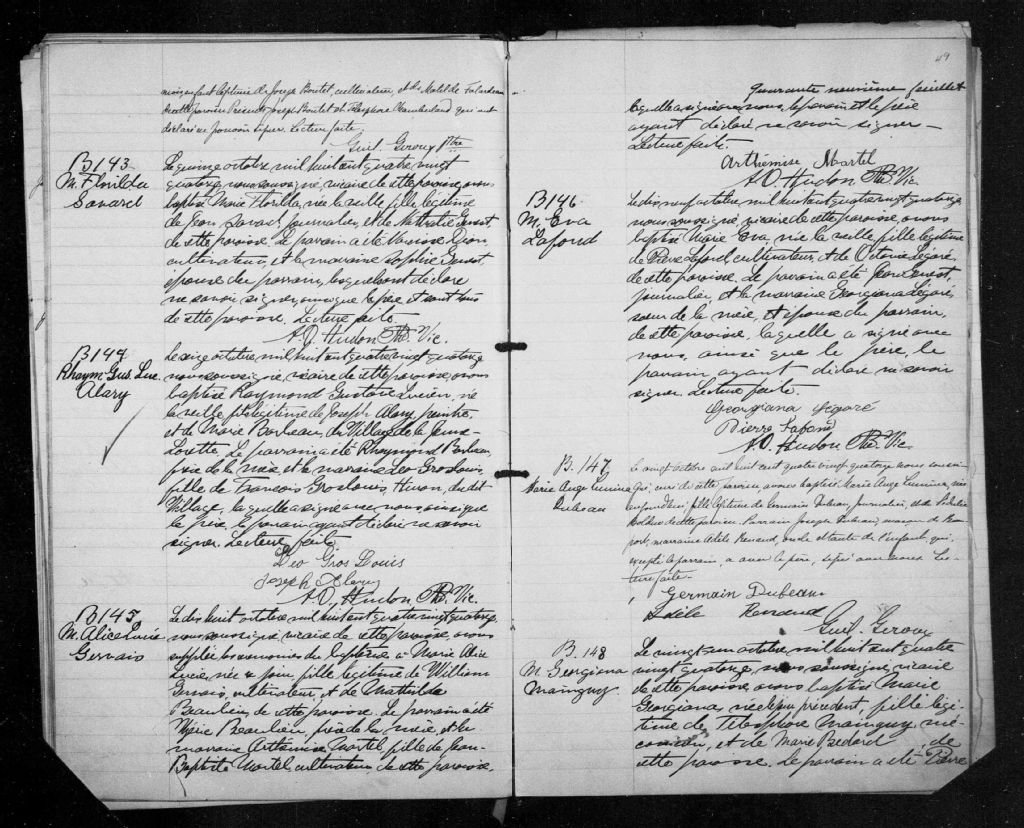 enfant légitime de Joseph Boutet, cultivateur, et de Matilde Falardeau
Présents Joseph Boutet et Télesphore Chamberland qui ont
déclaré ne pouvoir signer. Lecture faite,
Guil. Giroux Ptre
B143
M. Florilda
Savard
Le quinze octobre, mil huit cent quatre vingt
quatorze, nous soussigné, vicaire de cette paroisse, avons
baptisé Marie Florilda, née la veille, fille légitime
de Jean Savard, journalier, et de Nathalie
de cette paroisse. Le parrain a été Dion,
cultivateur, et la marraine Sophie
épouse du parrain, lesquels ont déclaré
ne savoir signer, ainsi que le père, et sont tous
de cette paroisse. Lecture faite.
A.O. Hudon Ptre. Vic.
B144
Rhaym. Gus. Luc.
Alary
Le seize octobre, mil huit cent quatre vingt quatorze
nous soussigné, vicaire de cette paroisse, avons
baptisé Raymond Gustave Lucien, né
la veille, fils légitime de Joseph Alary, peintre,
et de Marie Barbeau, du Village de la Jeune-
Lorette. Le parrain a été Rhaymond Barbeau,
père de la mère et la marraine Léo Groslouis,
fille de François Groslouis, Huron, du dit
Village, laquelle a signé avec nous ainsi que
le père, le parrain ayant déclaré ne savoir
signer. Lecture faite.
Léo Gros Louis
Joseph Alary
A.O. Hudon Ptre. Vic.
B145
M. Alice Lucie
Gervais
Le dix huit octobre, mil huit cent quatre vingt quatorze,
nous soussigné vicaire de cette paroisse, avons
suppléé les cérémonies du baptême à Marie Alice
Lucie, née le jour, fille légitime de William
Gervais, cultivateur, et de Mathilda
Beaulieu, de cette paroisse. Le parrain a été
Beaulieu, frère de la mère, et la
marraine Arthémise Martel, fille de Jean-
Baptiste Martel, cultivateur de cette paroisse,
49
Quarante neuvième feuillet
laquelle a signé avec nous, le parrain et le père
ayant déclaré ne savoir signer —
Lecture faite.
Arthémise Martel
A.O. Hudon Ptre. Vic.
B146
M. Eva
Lafond
Le dix neuf octobre, mil huit cent quatre vingt quatorze,
nous soussigné vicaire de cette paroisse, avons
baptisé Marie Eva, née la veille, fille légitime
de Pierre Lafond, cultivateur, et de Octavie Légaré,
de cette paroisse. Le parrain a été Jean
journalier, et la marraine Georgiana Légaré,
sœur de la mère, et épouse du parrain,
de cette paroisse, laquelle a signé avec
nous, ainsi que le père, le
parrain ayant déclaré ne savoir
signer. Lecture faite.
Georgiana Légaré
Pierre Lafond
A.O. Hudon Ptre. Vic.
B. 147
Marie Ange Lumina
Dubeau
Le vingt octobre mil huit cent quatre vingt quatorze nous soussi-
gné, curé de cette paroisse avons baptisé Marie Ange Lumina, née
aujourd'hui, fille légitime de Germain Dubeau, journalier, et de
de cette paroisse. Parrain Joseph Dubeau, de Beau-
port, marraine Adèle Renaud, oncle et tante de l'enfant, qui,
excepté le parrain, a avec le père, signé avec nous. Lec-
ture faite.
Germain Dubeau
Adèle Renaud
Guil. Giroux
B. 148
M. Georgiana
Mainguy
Le vingt un octobre mil huit cent quatre
vingt quatorze, nous soussigné vicaire
de cette paroisse avons baptisé Marie
Georgiana, née le jour précédent, fille légi-
time de Télesphore Mainguy, mé-
canicien, et de Marie Bédard de
cette paroisse. Le parrain a été Pierre